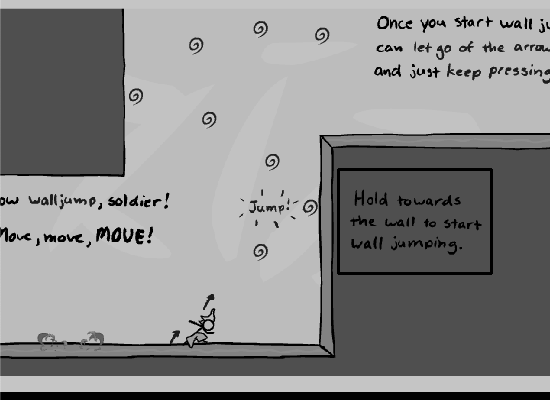 Once you start wall
can let go of the
and just keep pressing
walljump, soldier!
Move, move, MOVE!
Jump!
Hold towards
the wall to start
wall jumping.